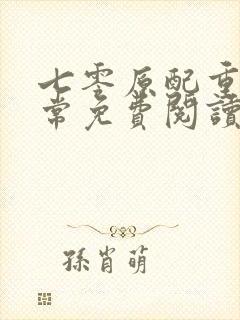 七零原配重
常免費閱讀
孫肖萌